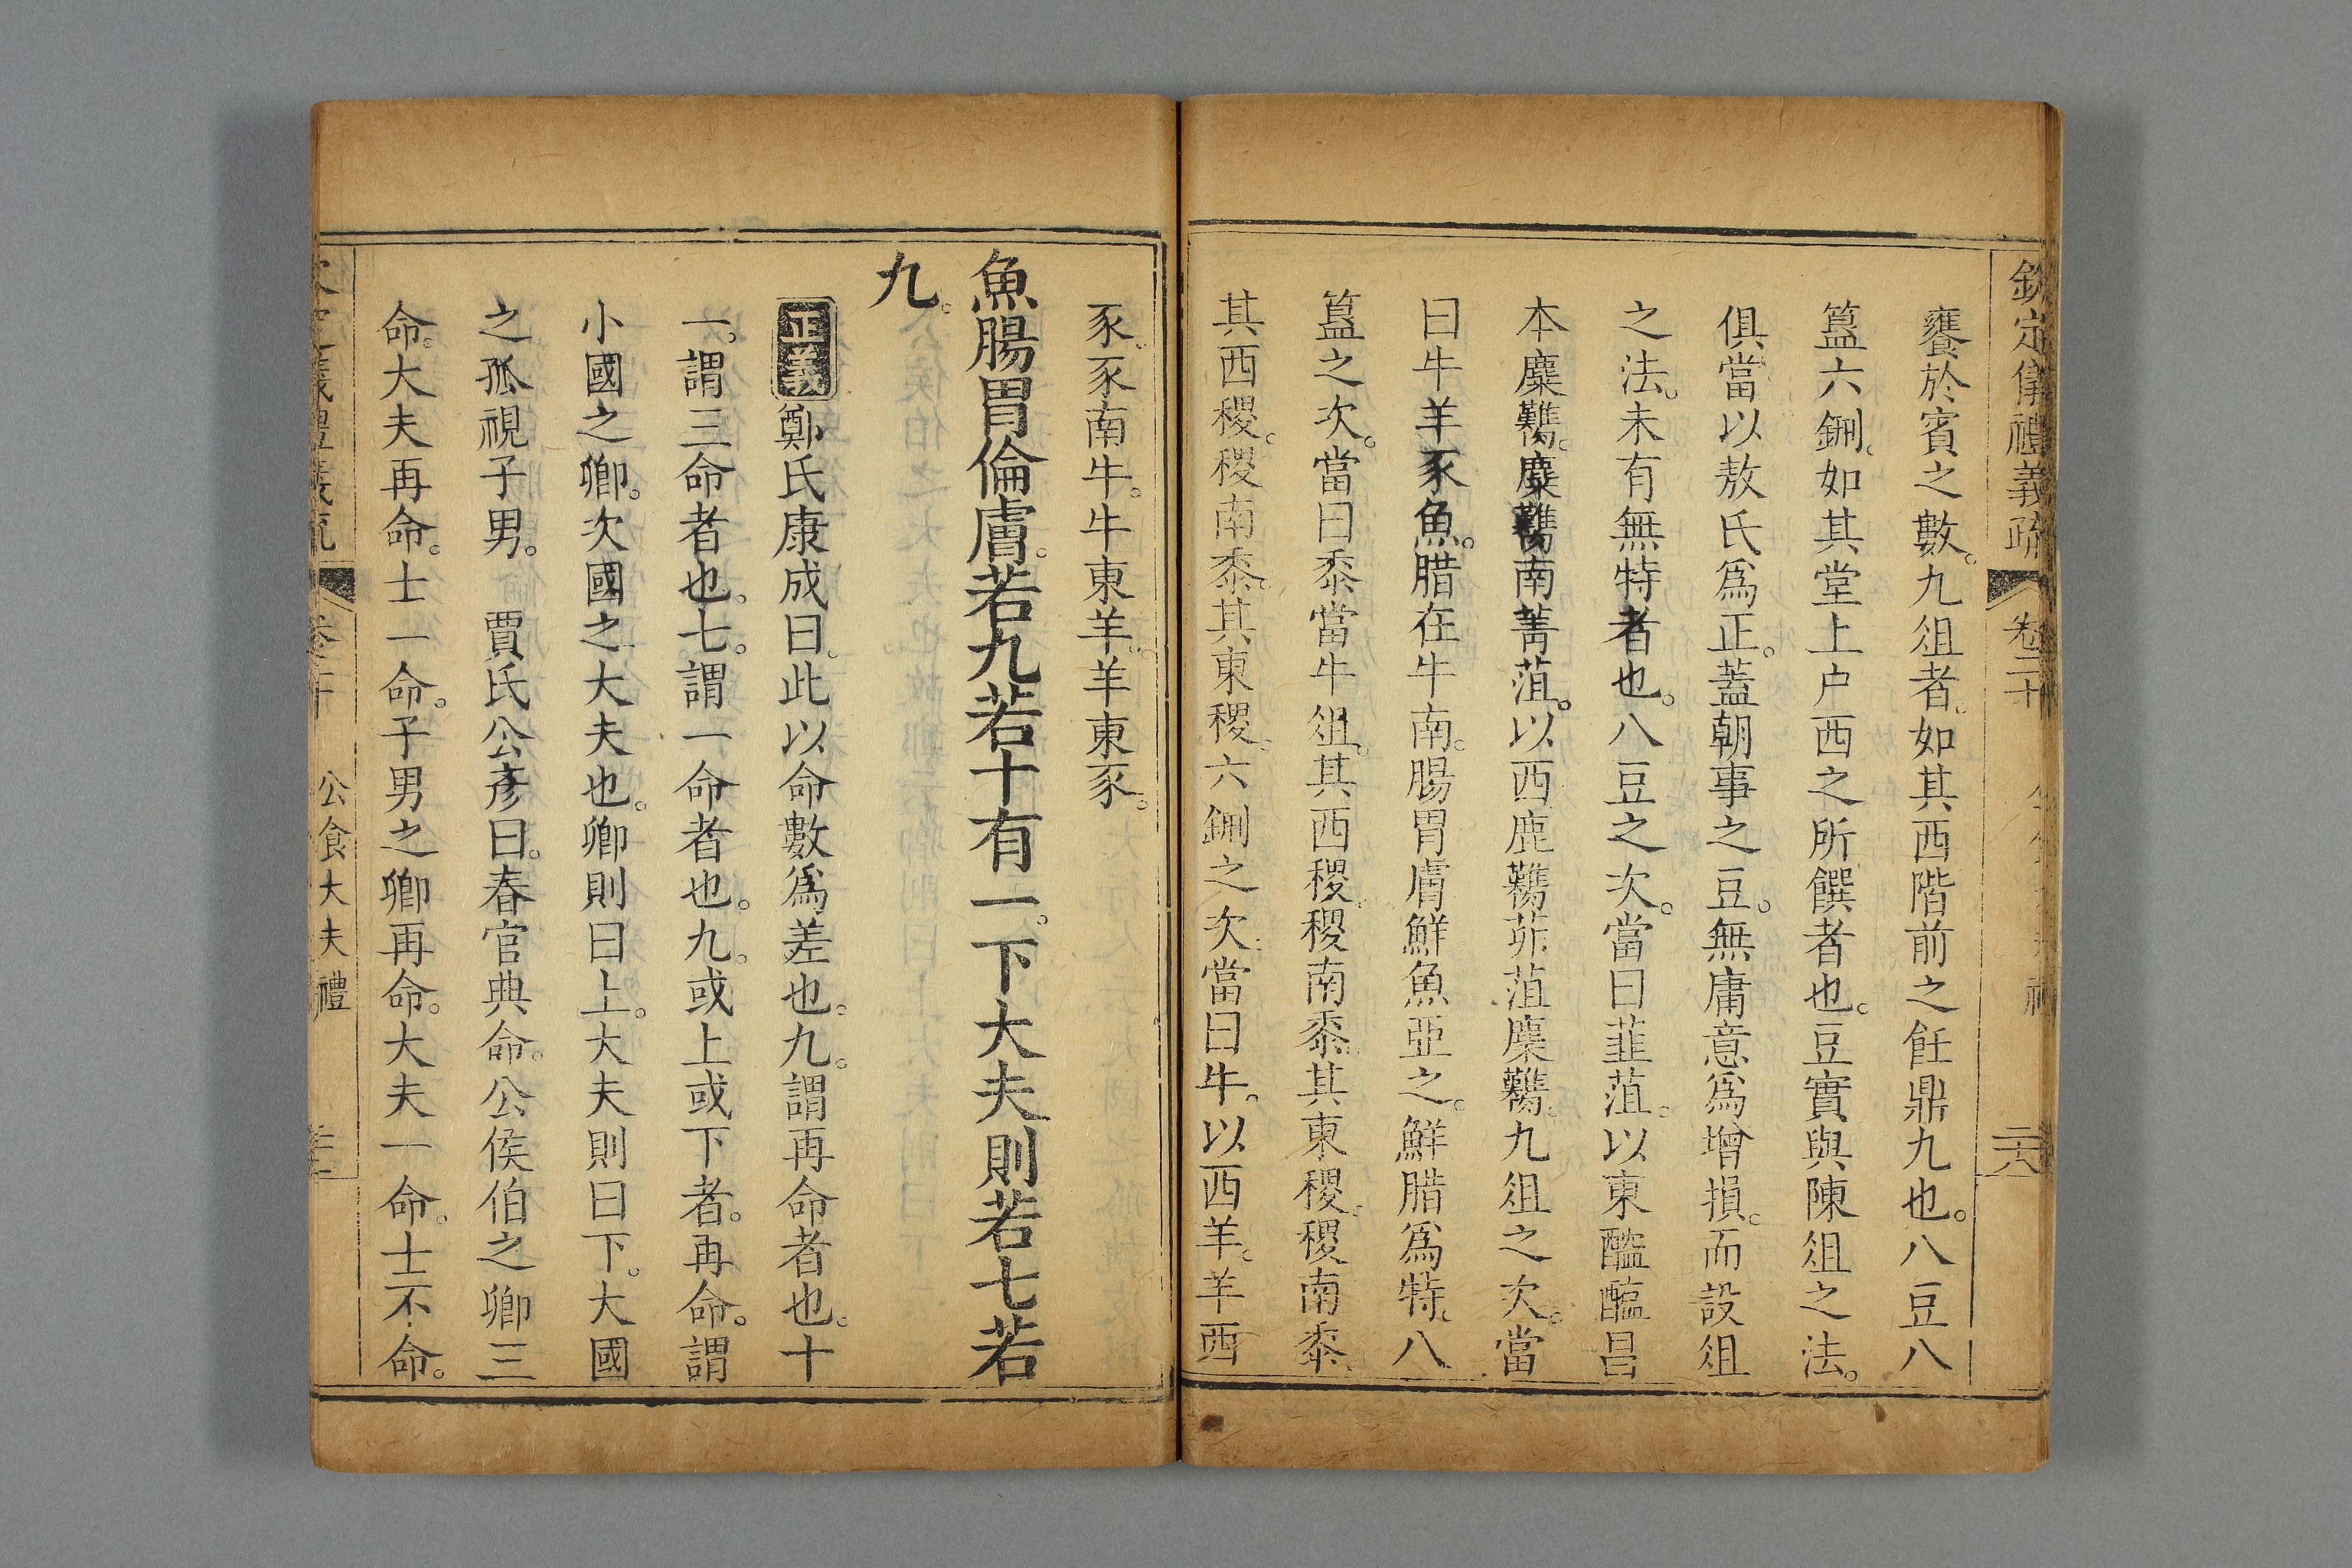 欽定儀禮義疏 卷二十
饔於賓之數。九俎者。如其西階前之飪鼎九也。八豆八
簋六鉶。如其堂上户西之所饌者也。豆實與陳俎之法。
俱當以敖氏爲正。蓋朝事之豆。無庸意爲增損。而設俎
之法。未有無特者也。八豆之次。當曰韭菹。以東醓醢昌
本麋臡。麋臡南菁菹。以西鹿臡茆菹麇臡。九俎之次。當
曰牛羊豕魚。腊在牛南。腸胃膚鮮魚亞之。鮮腊爲特。八
簋之次。當曰黍當牛俎。其西稷。稷南黍。其東稷。稷南黍。
其西稷。稷南黍。其東稷。六鉶之次。當曰牛。以西羊。羊西
豕。豕南牛。牛東羊。羊東豕。
魚腸胃倫膚。若九若十有一。下大夫則若七若
九。
正義 鄭氏康成曰。此以命數爲差也。九。謂再命者也。十
一。謂三命者也。七。謂一命者也。九。或上或下者。再命。謂
小國之卿。次國之大夫也。卿則曰上。大夫則曰下。大國
之孤視子男。 賈氏公彥曰。春官典命。公侯伯之卿三
命。大夫再命。士一命。子男之卿再命。大夫一命。士不命。
公食大夫禮